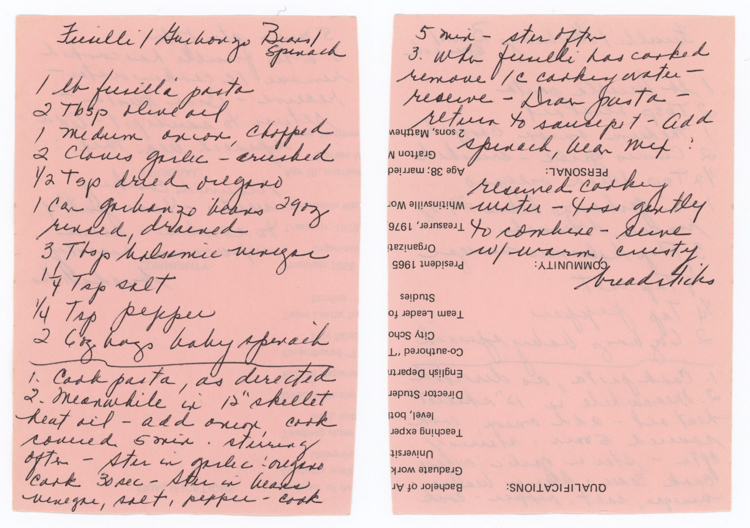 Fusilli / Garbonzo Beans /
Spinach
1 lb fusilla pasta
2 Tbsp olive oil
1 medium onion, chopped
2 cloves garlic - crushed
1/2 Tsp dried oregano
1 can garbanzo beans 29oz
rinsed, drained
3 Tbsp balsamic vinegar
1/4 Tsp salt
1/4 Tsp pepper
2 6oz bags baby spinach
1. Cook pasta, as directed
2. Meanwhile in 12" skillet
heat oil - add onion, cook
covered 5 min. stirring
often - Stir in garlic : oregano
cook 30 sec - Stir in beans,
vinegar, salt, pepper - cook
5 min - stir often
3. When fusilli has cooked
remove 1c cooking water -
reserve - Drain pasta -
return to saucepot - add
spinach, bean mix :
reserved cooking
water - toss gently
to combine - serve
w/ warm, crusty
breadsticks
QUALIFICATIONS:
Bachelor of Ar
Graduate work
Universit
Teaching exper
level, both
Director Studen
English Departm
Co-authored "T
City Scho
Team Leader fo
Studies
COMMUNITY:
President 1965
Organizatio
Treasurer, 1976
Whitinsville Wo
PERSONAL:
Age 38; married
Grafton M
2 sons, Mathew